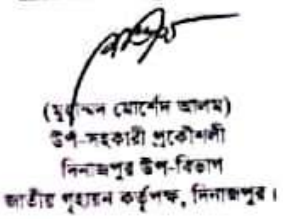 (মুহাম্মদ মোর্শেদ আলম)
উপ-সহকারী প্রকৌশলী
দিনাজপুর উপ-বিভাগ
জাতীয় গৃহায়ন কর্তৃপক্ষ, দিনাজপুর।